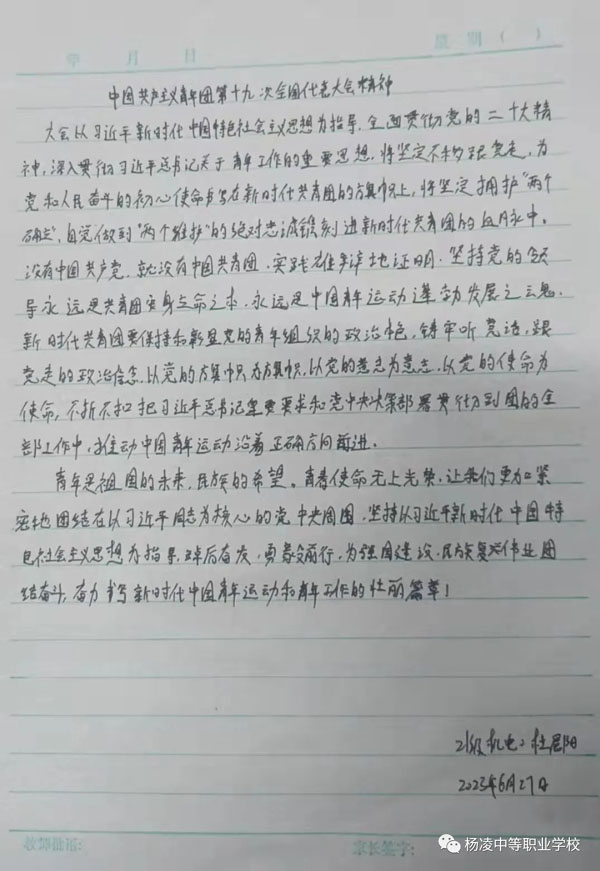 年 月 日 星期( )
中国共产主义青年团第十九次全国代表大会精神
大会以习近平新时代中国特色社会主义思想为指导,全面贯彻党的二十大精
神,深入贯彻习近平总书记关于青年工作的重要思想,将坚定不移跟党走,为
党和人民奋斗的初心使命书写在新时代共青团的旗帜上,将坚定拥护"两个
确立",自觉做到"两个维护"的绝对忠诚镌刻进新时代共青团的血脉中。
没有中国共产党,就没有中国共青团,实践雄辩地证明,坚持党的领
导永远是共青团安身立命之本,永远是中国青年运动蓬勃发展之云鬼。
新时代共青团要保持和彰显党的青年组织的政治本色,铸牢听党话,跟
党走的政治信念,以党的旗帜为旗帜,以党的意志为意志,以党的使命为
使命,不折不扣把习近平总书记重要要求和党中央决策部署贯彻到团的全
部工作中,推动中国青年运动沿着正确方向前进。
青年是祖国的未来,民族的希望。青春使命无上光荣,让我们更加紧
密地团结在以习近平同志为核心的党中央周围,坚持以习近平新时代中国特
色社会主义思想为指导,踔厉奋发,勇毅前行,为强国建设,民族复兴伟业团
结奋斗,奋力书写新时代中国青年运动和青年工作的壮丽篇章!
21级机电2杜
2023年6月27日
教师批语: 家长签字:
杨凌中等职业学校